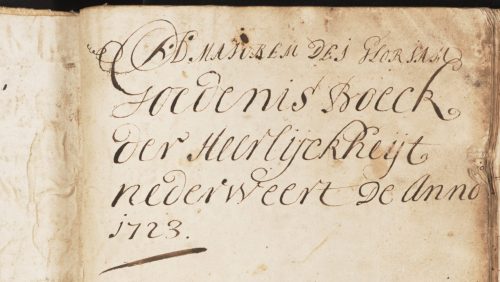 AD MAIOREM DEI GLORIAM
Goedenis Boeck
der Heerlijckheijt
nederweert De Anno
1723.